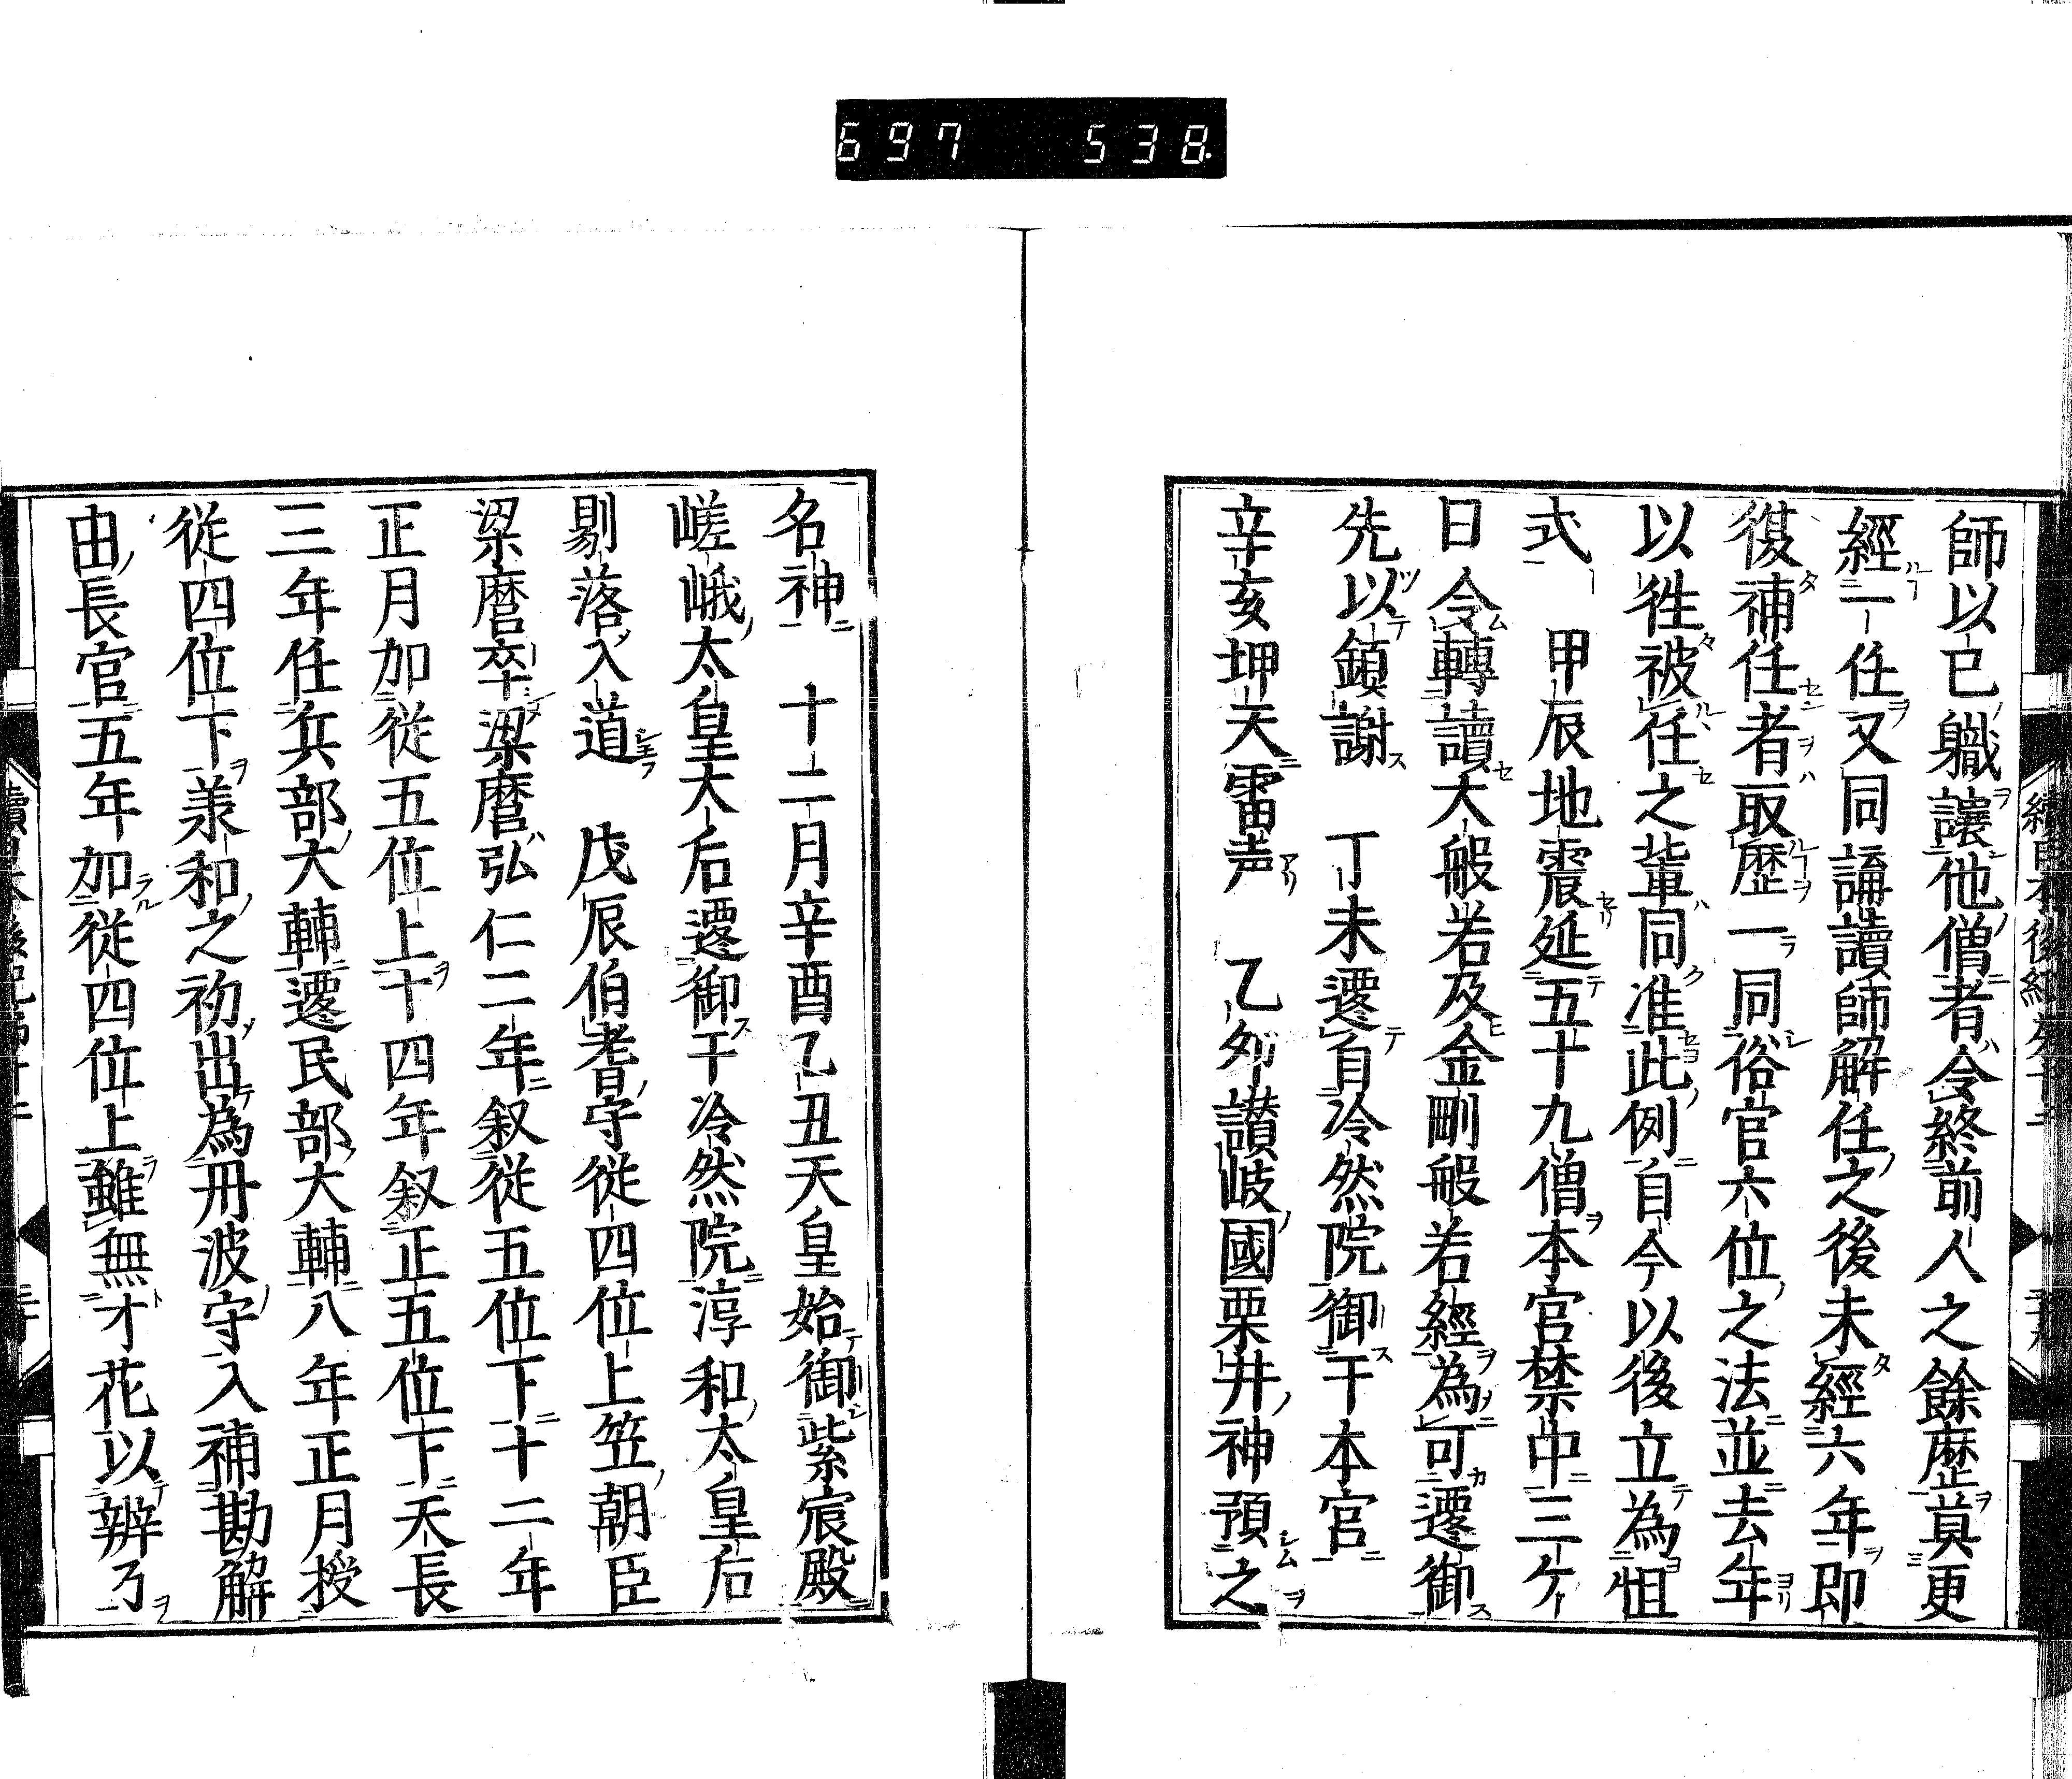 697 538.
師以已軄讓他僧者令終前人之餘歴莫更
經二任又同講讀師解任之後未經六年即
復補任者取歴一同俗官六位之法並去年
以徃被任之輩同准此例自今以後立為恒
式 甲辰地震延五十九僧本官禁中三ケ
日令轉讀大般若及金剛般若經為可遷御
先以鎮謝 丁未遷自冷然院御于本官
辛亥坤天雷声 乙夘讃岐國栗井神預之
名神 十二月辛酉乙丑天皇始御紫宸殿
嵯峨太皇大后遷御于冷然院淳和太皇后
剔落入道 戊辰伯耆守従四位上笠朝臣
梁麿卒梁麿弘仁二年叙従五位下十二年
正月加従五位上十四年叙正五位下天長
三年任兵部大輔遷民部大輔八年正月授
従四位下兼和之初出為丹波守入補勘解
由長官五年加従四位上雖無才花以辨了